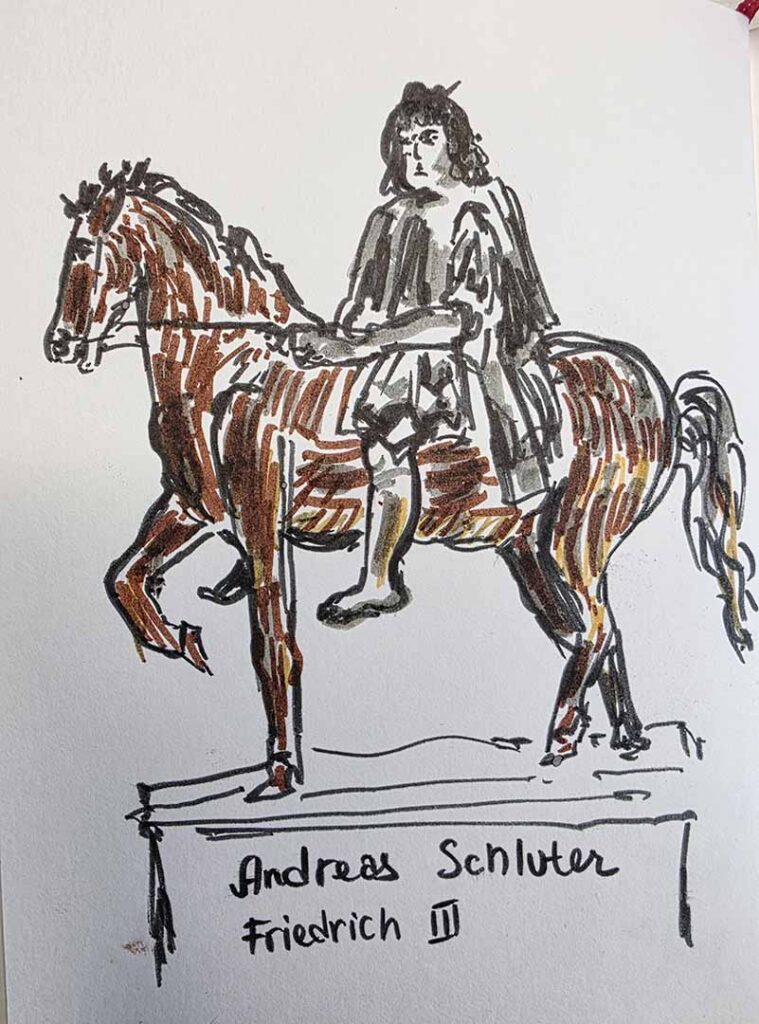 Andreas Schluter
Friedrich III